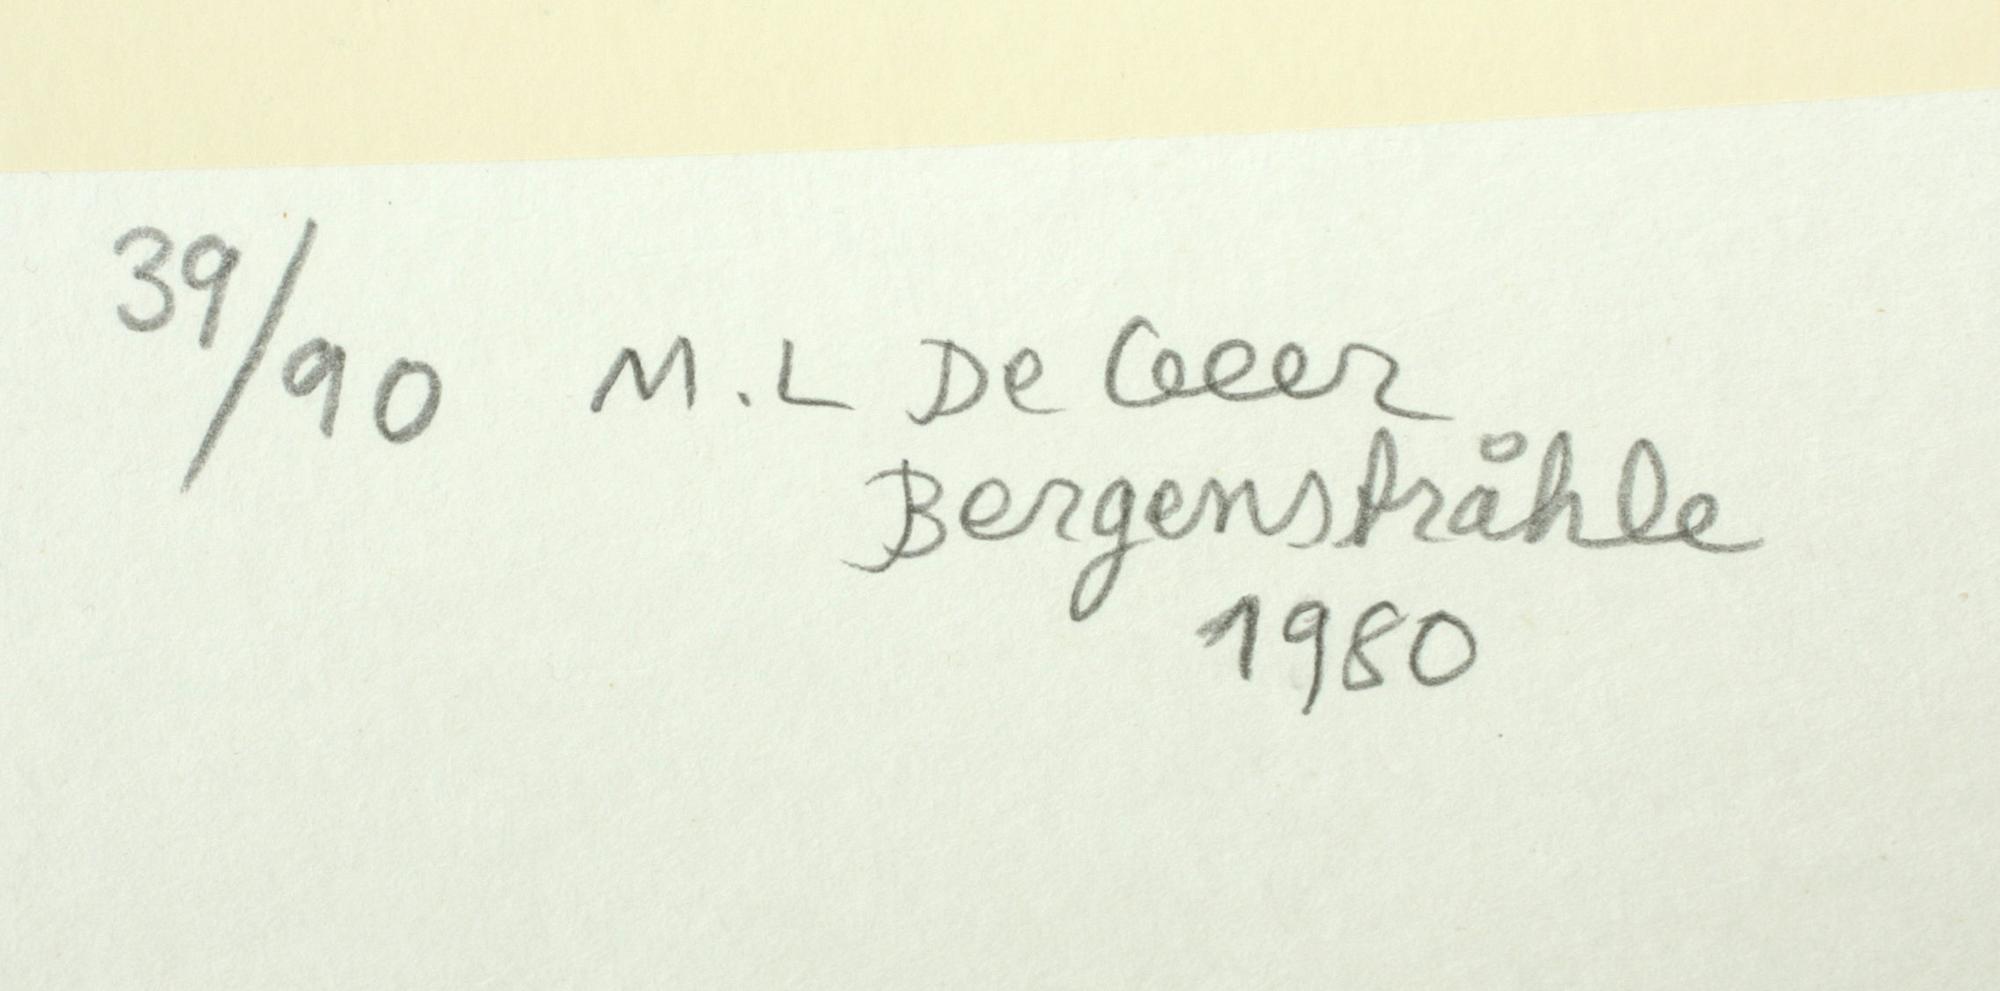 39/90 M.L De Geer
Bergenstråhle
1980